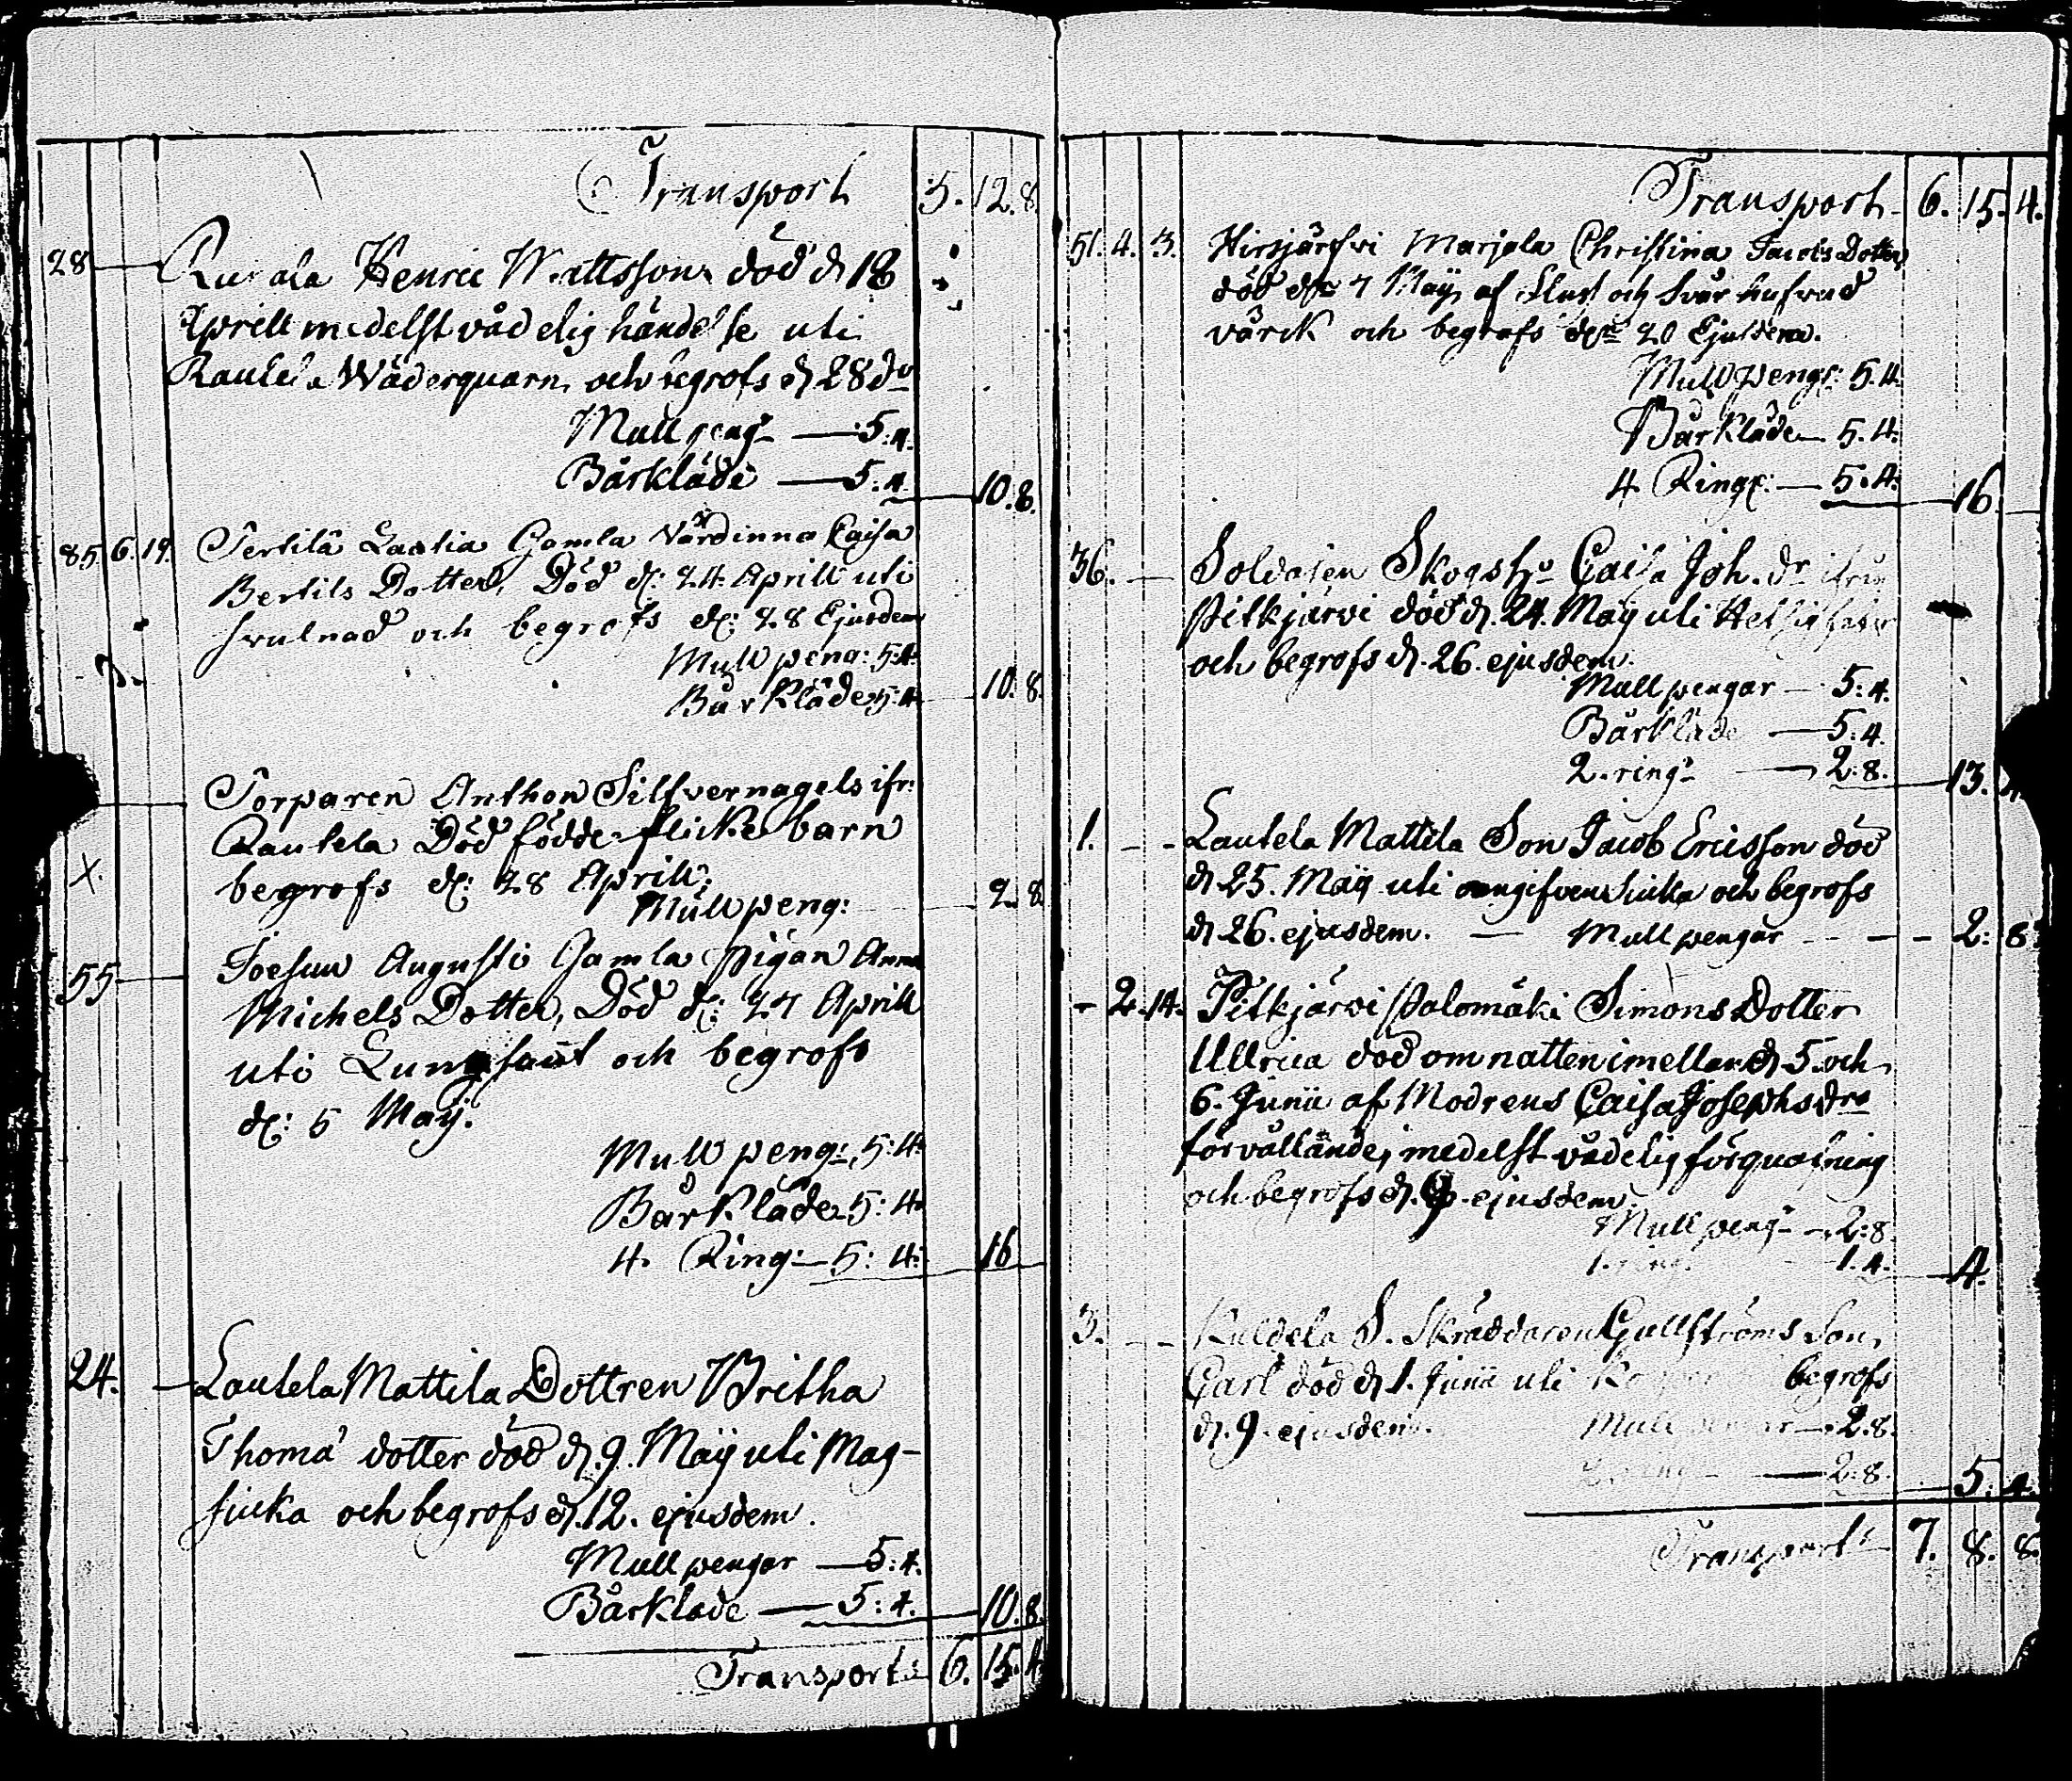 Transport 5. 12. 8.
28 Henric Mattsson död d. 18
Aprill medelst vådelig händelse uti
Rautela Wäderquarn och begrofs d. 28 do
Mull peng:r — 5:4.
Bårkläde — 5.4. 10:8.
85. 6. 19. Tertilä Lastia Gamla Värdinna Caisa
Bertils Dotter, Död d: 24 Aprill uti
svulnad och begrofs d: 28 Ejusdem
Mull peng: 5:4.
Bårkläde 5:4 10:8.
Torparen Anthon Silfvernagels ifr:
Rautela Död födde flicke barn
X. begrofs d: 28 Aprill;
Mull peng: 2. 8
55 Joesuu Augusti Gamla Pigan Anna
Michels Dotter, Död d: 27 Aprill
uti och begrofs
d: 5 Maij.
Mull peng:, 5:4.
Bårkläde 5:4.
4. Ring: — 5:4. 16
24. Lautela Mattila Dottren Britha
Thomæ dotter död d. 9. Maij uti Mag-
siuka och begrofs d. 12. ejusdem.
Mullpengar — 5:4.
Bårkläde — 5:4. 10. 8.
Transport 6. 15. 4
Transport 6. 15. 4.
51. 4. 3. Hirsjärfvi Marjala Christina Jacobs Dotter,
död d:n 7 Maij af och svår hufvud
värck och begrofs d:n 20 Ejusdem.
Mull peng:r 5.4.
Bårkläde 5.4.
4. Ring:r — 5.4. 16
36. — Soldaten Skogs h:u Caisa Joh. dr ifrån
Pitkjärvi död d. 24. Maij uti
och begrofs d. 26. ejusdem.
Mull pengar — 5:4.
Bårkläde — 5.4.
2. ring:r — 2.8. 13.
1. - - Lautela Mattila Son Jacob Ericsson död
d. 25. Maij uti oangifven siuka och begrofs
d. 26. ejusdem. — Mull pengar - - - 2: 8.
- 2. 14. Pitkjärvi Palomäki Simons Dotter
Ullrica död om natten imellan d. 5. och
6. Junii af Modrens Caisa Josephs drs
förvållande, medelst vådelig förquafning
och begrofs d. 9. ejusdem.
Mull peng:r — 2:8.
1. ring. 1.4. 4.
3. - - Kuldela S. Skräddaren Gullströms Son,
Carl död d. 1. Junii uti begrofs
d. 9. ejusdem. Mull pengar — 2.8.
— 2:8. 5. 4.
Transport 7. 8. 8.